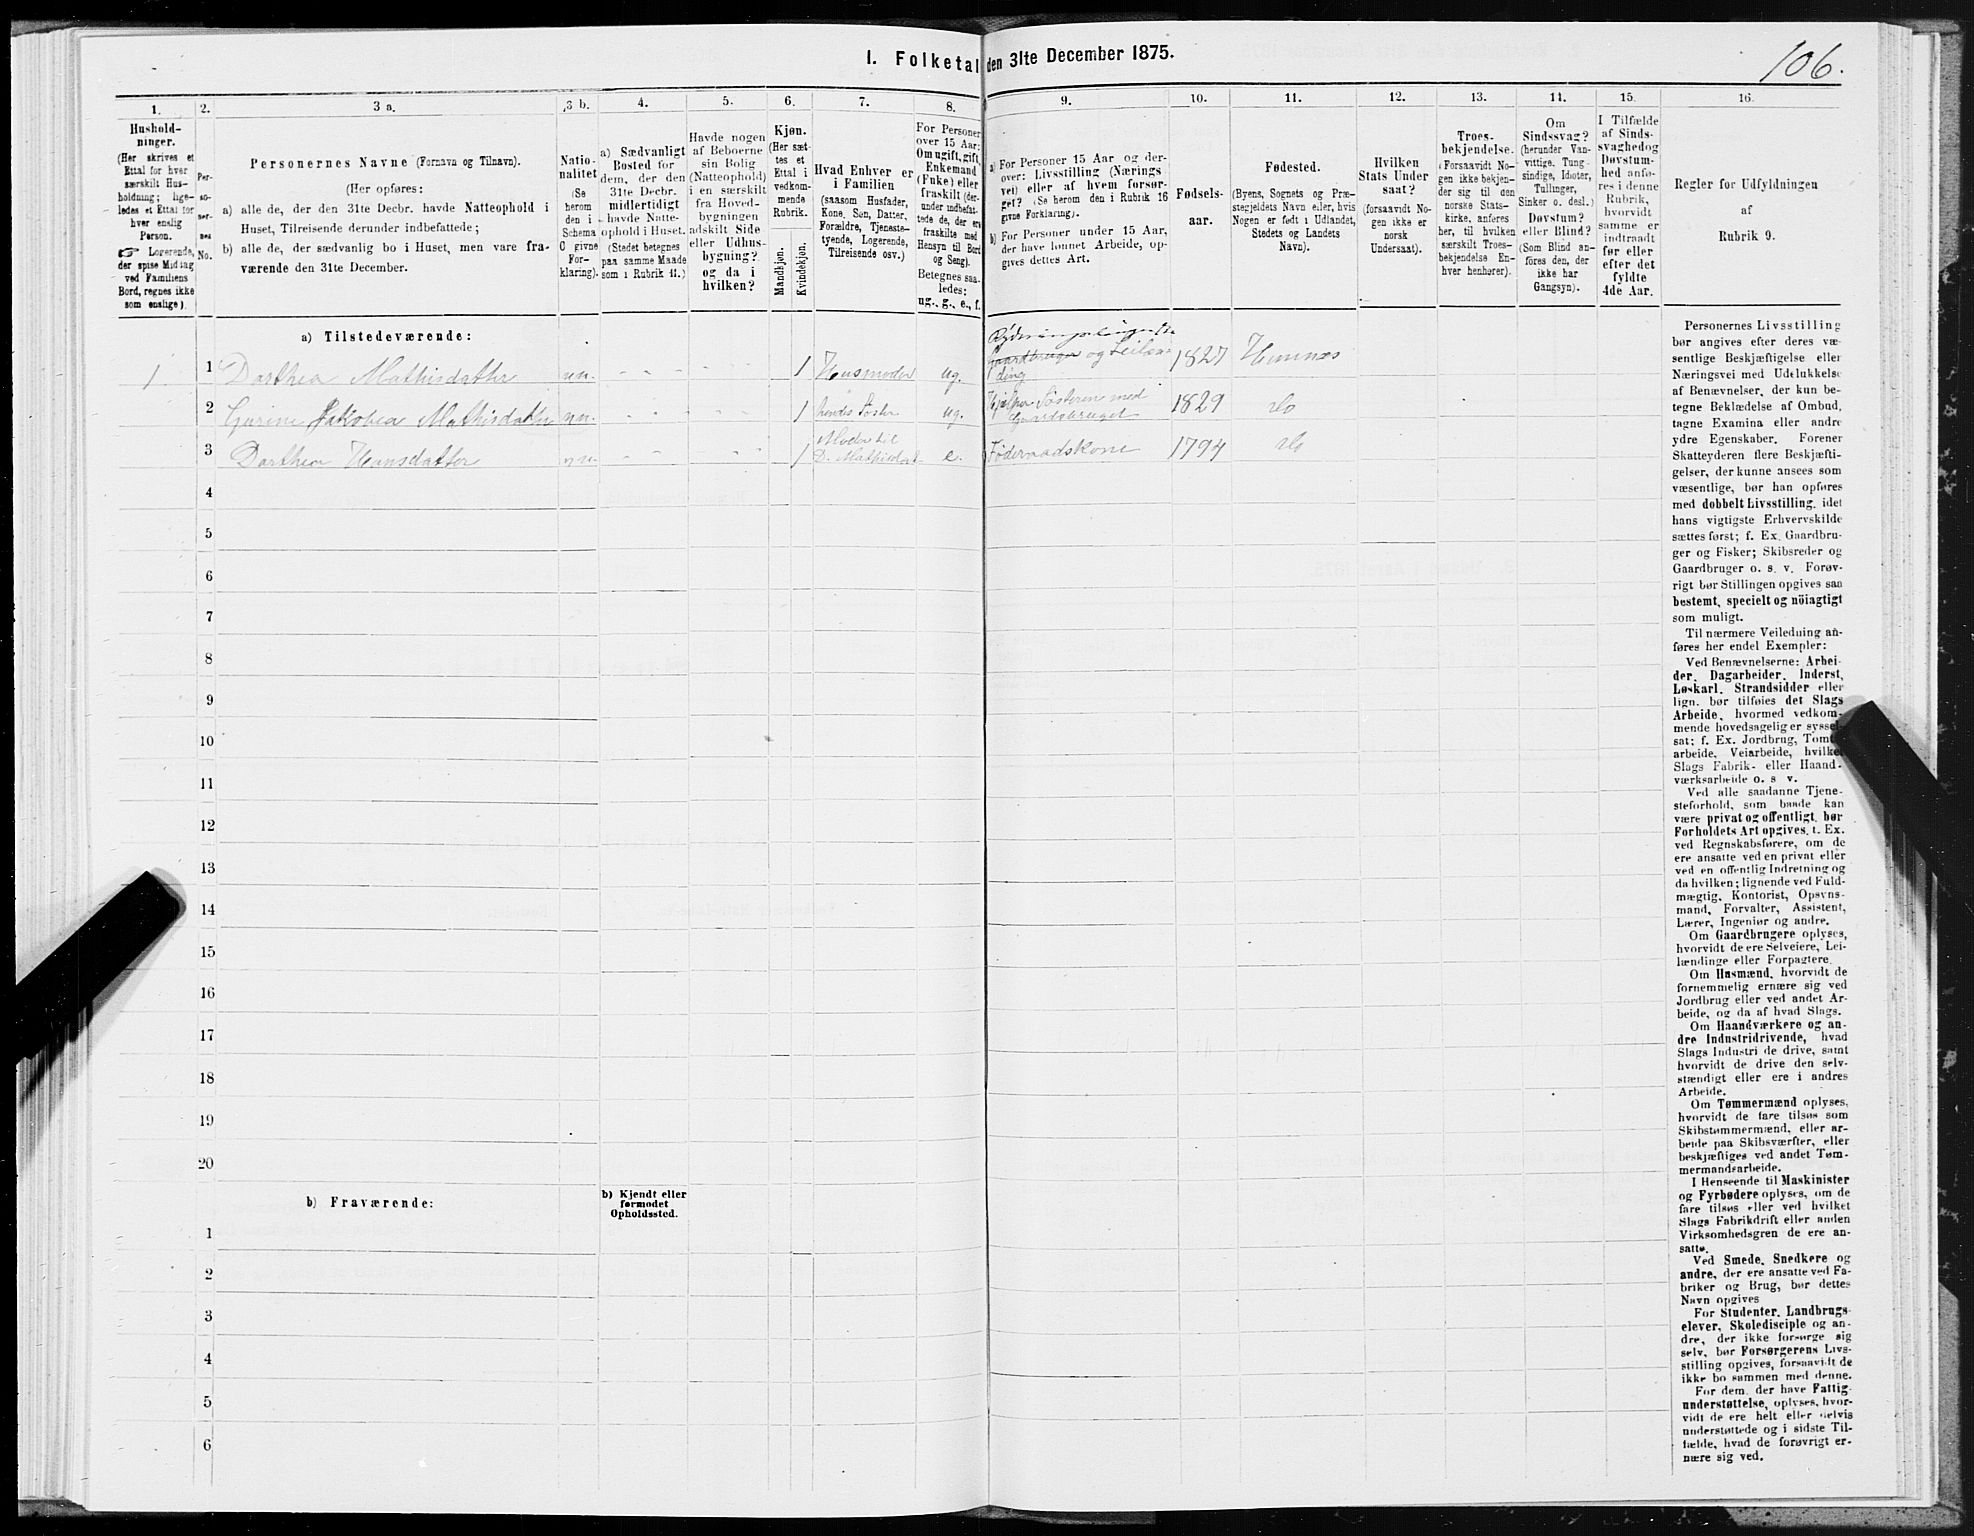 I. Folketal den 31te December 1875.
106.
1.
Hushold-
ninger.
(Her skrives et
Ettal for hver
særskilt Hus-
holdning; lige-
ledes et Ettal for
hver enslig
Person.
☞ Logerende,
der spise Middag
ved Familiens
Bord, regnes ikke
som enslige).
2.
Per-
so-
ner-
nes
No.
3 a.
Personernes Navne (Fornavn og Tilnavn).
(Her opføres:
a) alle de, der den 31te Decbr. havde Natteophold i
Huset, Tilreisende derunder indbefattede;
b) alle de, der sædvanlig bo i Huset, men vare fra-
værende den 31te December.
3 b.
Natio-
nalitet
(Se
herom
den i
Schema
C givne
For-
klaring).
4.
a) Sædvanligt
Bosted for
dem, der den
31te Decbr.
midlertidigt
havde Natte-
ophold i Huset.
(Stedet betegnes
paa samme Maade
som i Rubrik 11.)
5.
Havde nogen
af Beboerne
sin Bolig
(Natteophold)
i en særskilt
fra Hoved-
bygningen
adskilt Side
eller Udhus-
bygning?
og da i
hvilken?
6.
Kjøn.
(Her sæt-
tes et
Ettal i
vedkom-
mende
Rubrik.
Mandkjøn.
Kvindekjøn.
7.
Hvad Enhver er
i Familien
(saasom Husfader,
Kone, Søn, Datter,
Forældre, Tjeneste-
tyende, Logerende,
Tilreisende osv.)
8.
For Personer
over 15 Aar:
Om ugift, gift,
Enkemand
(Enke) eller
fraskilt (der-
under indbefat-
tede de, der ere
fraskilte med
Hensyn til Bord
og Seng).
Betegnes saa-
ledes:
ug., g., e., f.
9.
a) For Personer 15 Aar og der-
over: Livsstilling (Nærings
vei) eller af hvem forsør-
get? (Se herom den i Rubrik 16
givne Forklaring).
b) For Personer under 15 Aar,
der have lønnet Arbeide, op-
gives dettes Art.
10.
Fødsels-
aar.
11.
Fødested.
(Byens, Sognets og Præ-
stegjeldets Navn eller, hvis
Nogen er født i Udlandet,
Stedets og Landets
Navn).
12.
Hvilken
Stats Under
saat?
(forsaavidt No-
gen ikke er
norsk
Undersaat).
13.
Troes-
bekjendelse.
(Forsaavidt No-
gen ikke bekjen-
der sig til den
norske Stats-
kirke, anføres
her, til hvilken
særskilt Troes-
bekjendelse En-
hver henhører).
14.
Om
Sindssvag?
(herunder Van-
vittige, Tung-
sindige, Idioter,
Tullinger,
Sinker o. desl.)
Døvstum?
eller Blind?
(Som Blind an-
føres den, der
ikke har
Gangsyn).
15.
I Tilfælde
af Sinds-
svaghed og
Døvstum-
hed anfø-
res i denne
Rubrik,
hvorvidt
samme er
indtraadt
før eller
efter det
fyldte
4de Aar.
16.
Regler for Udfyldningen
af
Rubrik 9.
a) Tilstedeværende:
1 1 Dorthea Mathisdatter nn. - - - 1 Husmoder ug. Gaardbruger og Leilæn-
ding 1827 Hemnæs
2 Gurine Jakobea Mathisdatter nn. - - - 1 hendes Søster ug. Hjælper Søsteren med
Gaardsbruget 1829 do
3 Dorthea Hansdatter nn. - - - 1 Moder til
D. Mathisdat e. Føderaadskone 1794 do
4
5
6
7
8
9
10
11
12
13
14
15
16
17
18
19
20
b) Fraværende:
b) Kjendt eller
formodet
Opholdssted.
1
2
3
4
5
6
Personernes Livsstilling
bør angives efter deres væ-
sentlige Beskjæftigelse eller
Næringsvei med Udelukkelse
af Benævnelser, der kun be-
tegne Beklædelse af Ombud,
tagne Examina eller andre
ydre Egenskaber. Forener
Skatteyderen flere Beskjæfti-
gelser, der kunne ansees som
væsentlige, bør han opføres
med dobbelt Livsstilling, idet
hans vigtigste Erhvervskilde
sættes først; f. Ex. Gaardbru-
ger og Fisker; Skibsreder og
Gaardbruger o. s. v. Forøv-
rigt bør Stillingen opgives saa
bestemt, specielt og nöiagtigt
som muligt.
Til nærmere Veiledning an-
føres her endel Exempler:
Ved Benævnelserne: Arbei-
der, Dagarbeider, Inderst,
Løskarl, Strandsidder eller
lign. bør tilføies det Slags
Arbeide, hvormed vedkom-
mende hovedsagelig er syssel-
sat; f. Ex. Jordbrug, Tomt-
arbeide, Veiarbeide, hvilket
Slags Fabrik- eller Haand-
værksarbeide o. s v.
Ved alle saadanne Tjene-
steforhold, som baade kan
være privat og offentligt, bør
Forholdets Art opgives, t. Ex.
ved Regnskabsførere, om de
ere ansatte ved en privat eller
ved en offentlig Indretning og
da hvilken; lignende ved Fuld-
mægtig, Kontorist, Opsyns-
mand, Forvalter, Assistent,
Lærer, Ingeniør og andre.
Om Gaardbrugere oplyses,
hvorvidt de ere Selveiere, Lei-
lændinge eller Forpagtere.
Om Husmænd, hvorvidt de
fornemmelig ernære sig ved
Jordbrug eller ved andet Ar-
beide, og da af hvad Slags.
Om Haandværkere og an-
dre Industridrivende, hvad
Slags Industri de drive, samt
hvorvidt de drive den selv-
stændigt eller ere i andres
Arbeide.
Om Tømmermænd oplyses,
hvorvidt de fare tilsøs som
Skibstømmermænd, eller ar-
beide paa Skibsværfter, eller
beskjæftiges ved andet Tøm-
mermandsarbeide.
I Henseende til Maskinister
og Fyrbødere oplyses, om de
fare tilsøs eller ved hvilket
Slags Fabrikdrift eller anden
Virksomhedsgren de ere an-
satte.
Ved Smede, Snedkere og
andre, der ere ansatte ved Fa-
briker og Brug, bør dettes
Navn opgives
For Studenter, Landbrugs-
elever, Skoledisciple og an-
dre, der ikke forsørge sig
selv, bør Forsørgerens Livs-
stilling opgives, forsaavidt de
ikke bo sammen med denne.
For dem, der have Fattig-
understøttelse, oplyses, hvor-
vidt de ere helt eller delvis
understøttede og i sidste Til-
fælde, hvad de forøvrigt er-
nære sig ved.